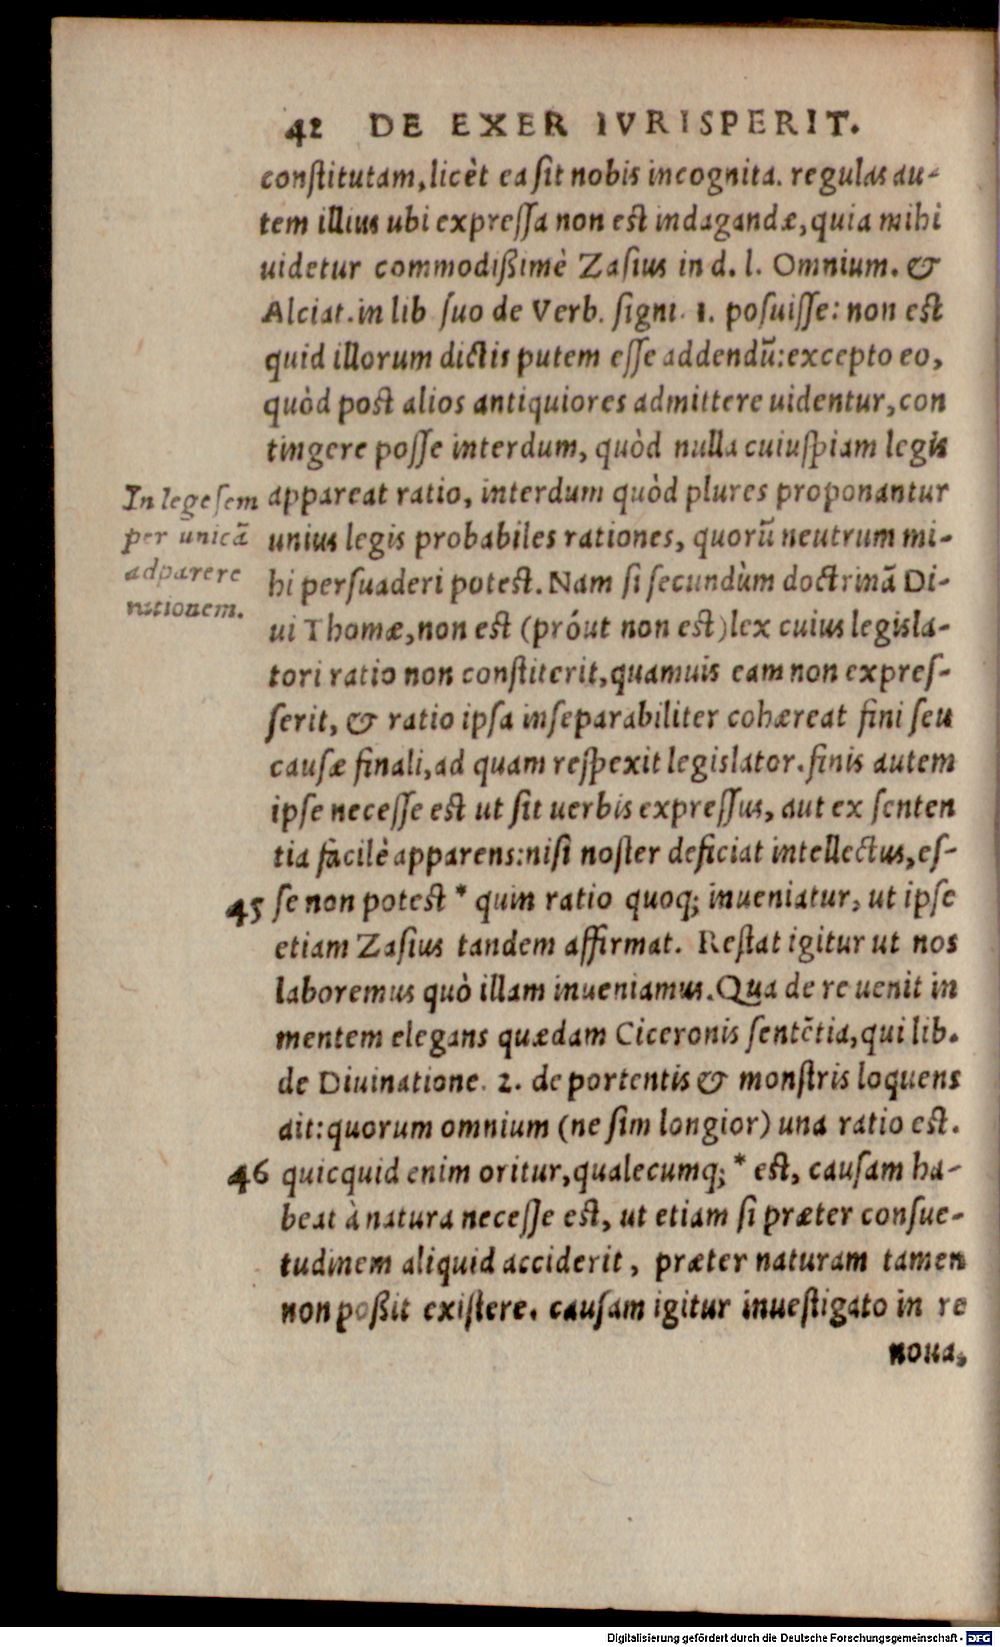 42 DE EXER IVRISPERIT.
conſtitutam, licèt ea ſit nobis incognita. regulas au-
tem illius ubi expreſſa non est indagandæ, quia mihi
uidetur commodißimè Zaſius in d. l. Omnium. &
Alciat. in lib ſuo de Verb. ſigni. 1. poſuiſſe: non est
quid illorum dictis putem eſſe addendũ: excepto eo,
quòd post alios antiquiores admittere uidentur, con
tingere poſſe interdum, quòd nulla cuiuſpiam legis
appareat ratio, interdum quòd plures proponantur
unius legis probabiles rationes, quorũ neutrum mi-
hi perſuaderi potest. Nam ſi ſecundùm doctrinã Di-
ui Thomæ, non est (próut non est) lex cuius legisla-
tori ratio non conſtiterit, quamuis eam non expreſ-
ſerit, & ratio ipſa inſeparabiliter cohæreat fini ſeu
cauſæ finali, ad quam reſpexit legislator. finis autem
ipſe neceſſe est ut ſit uerbis expreſſus, aut ex ſenten
tia facilè apparens: niſi noſter deficiat intellectus, eſ-
ſe non potest * quin ratio quoq; inueniatur, ut ipſe
etiam Zaſius tandem affirmat. Reſtat igitur ut nos
laboremus quò illam inueniamus. Qua de re uenit in
mentem elegans quædam Ciceronis ſentẽtia, qui lib.
de Diuinatione. 2. de portentis & monſtris loquens
ait: quorum omnium (ne ſim longior) una ratio est.
quicquid enim oritur, qualecumq; * est, cauſam ha-
beat à natura neceſſe est, ut etiam ſi præter conſue-
tudinem aliquid acciderit, præter naturam tamen
non poßit exiſtere. cauſam igitur inueſtigato in re
noua,
In lege ſem
per unicã
adparere
rationem.
45
46
Digitalisierung gefördert durch die Deutsche Forschungsgemeinschaft - DFG